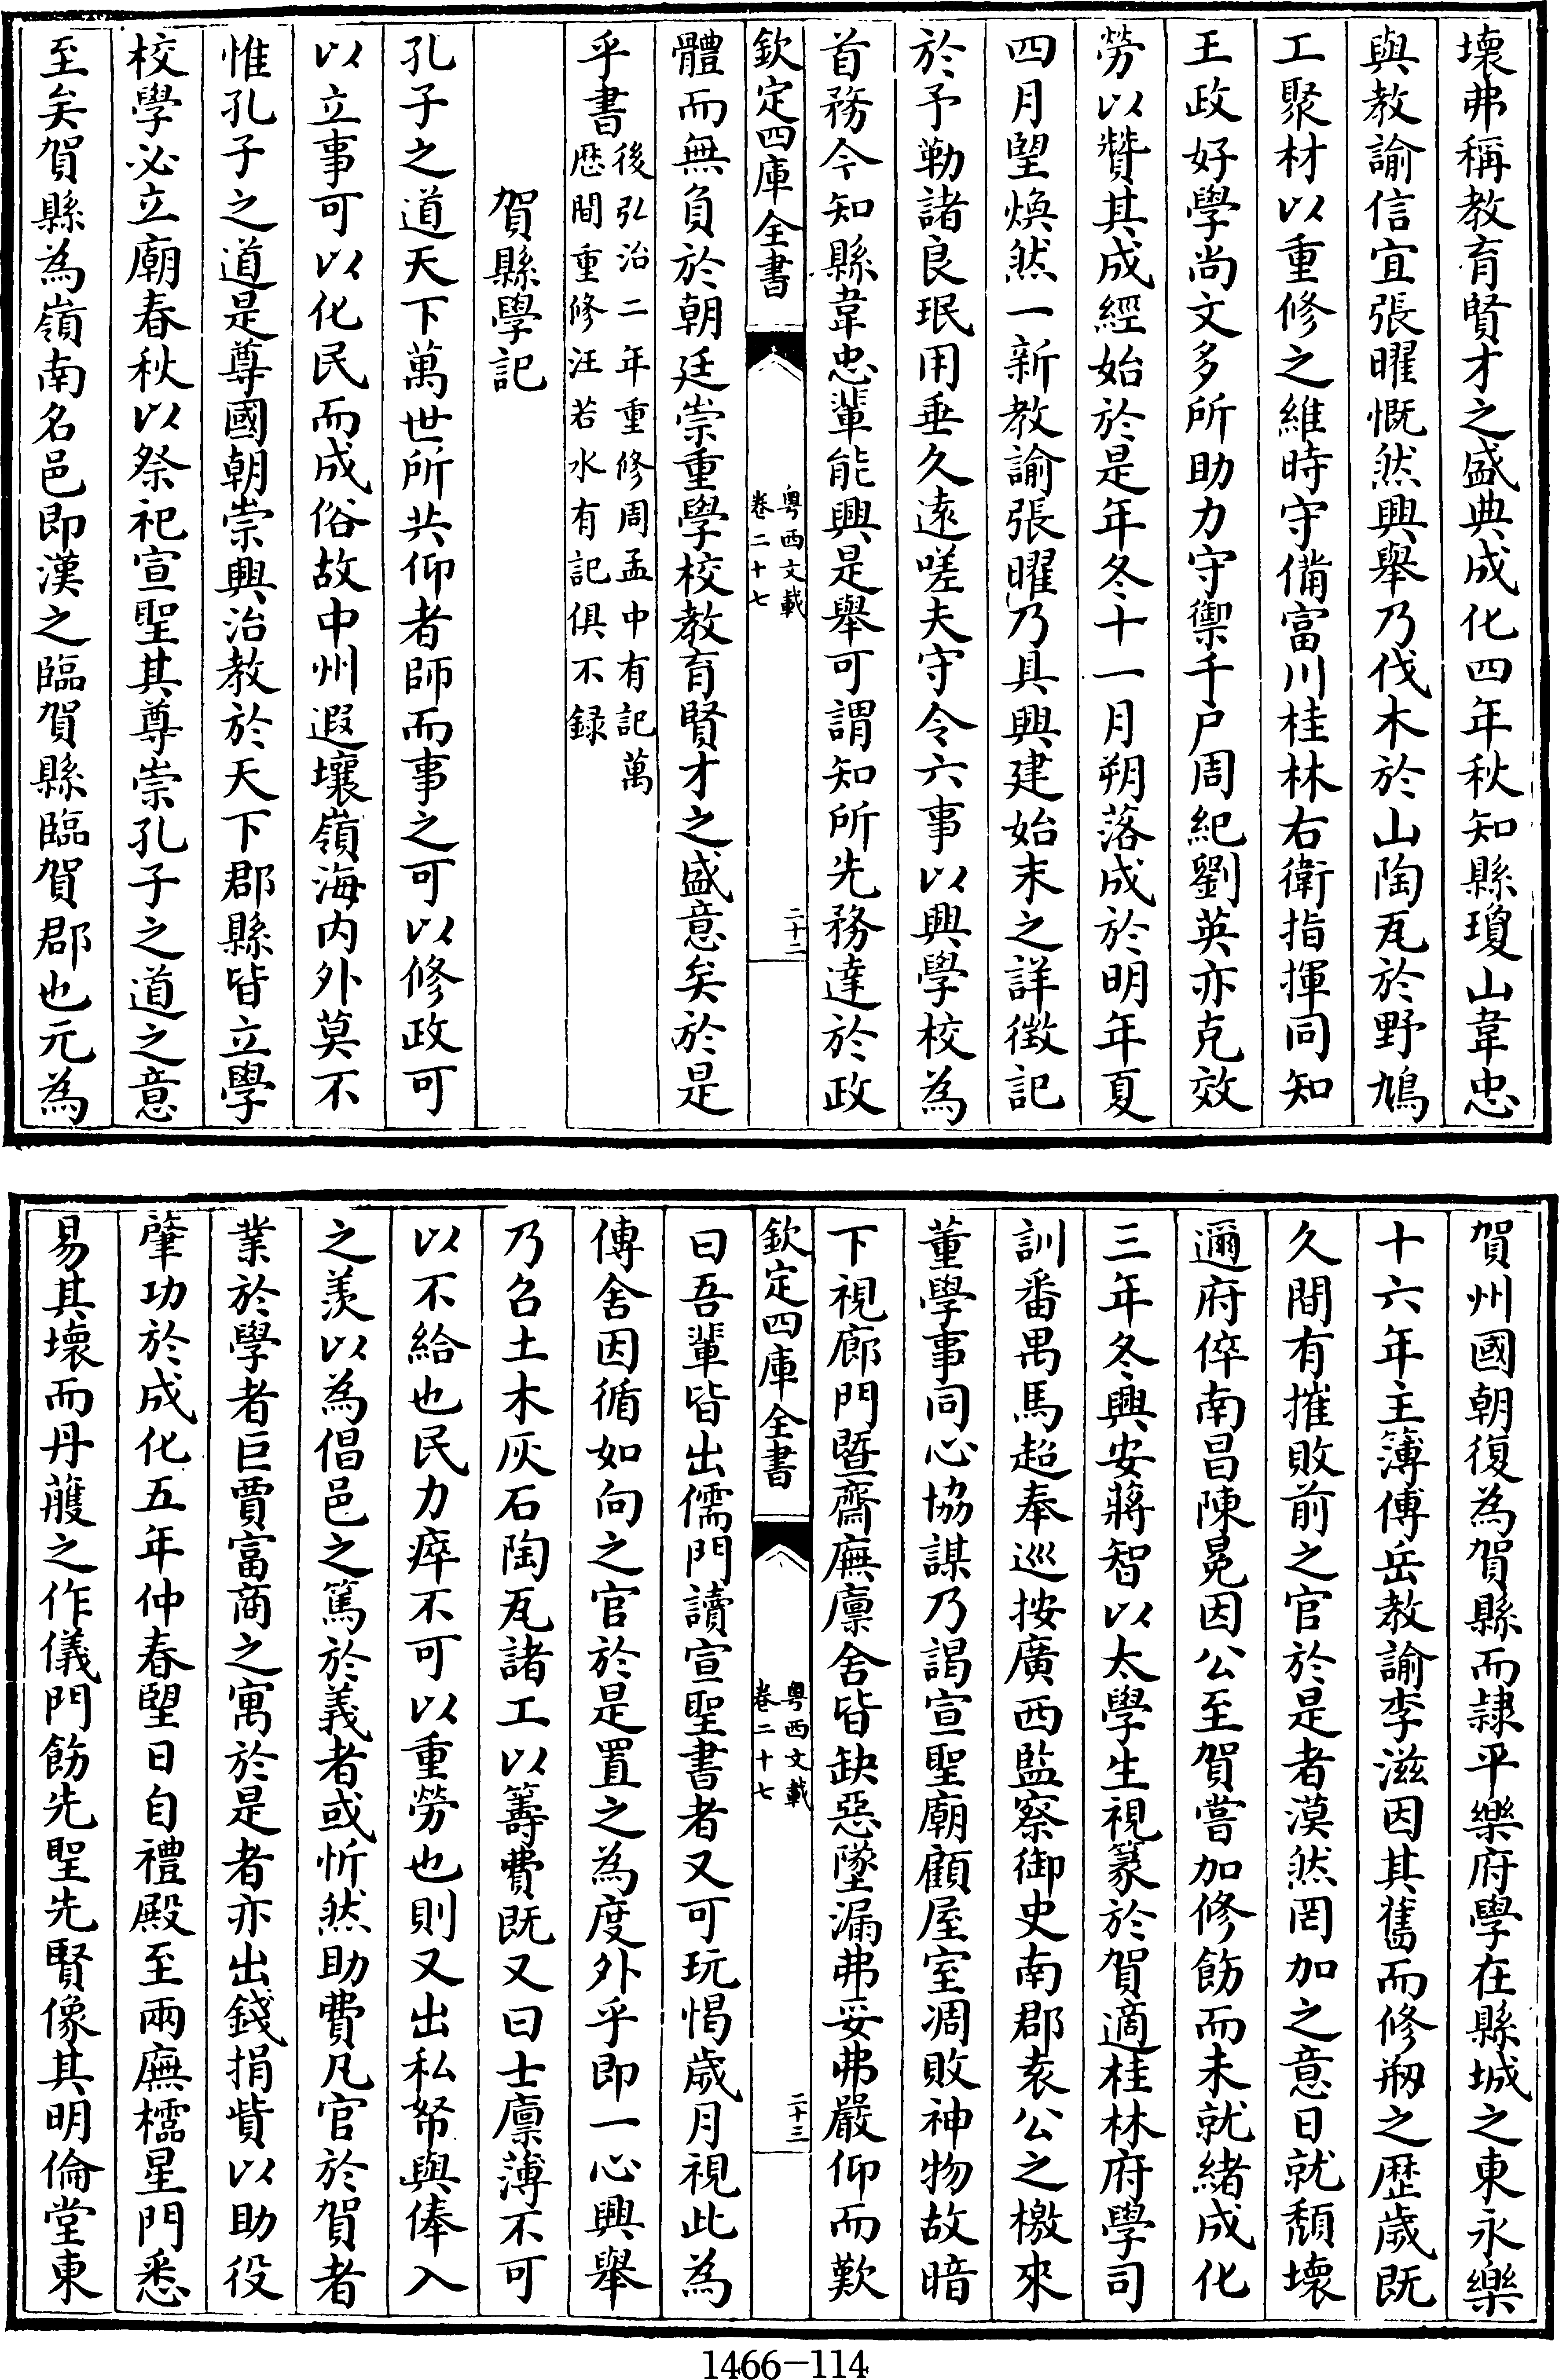 壞弗稱教育賢才之盛典成化四年秋知縣瓊山韋忠
與教諭信宜張曜慨然興舉乃伐木於山陶瓦於野鳩
工聚材以重修之維時守備富川桂林右衛指揮同知
王政好學尚文多所助力守禦千戶周紀劉英亦克效
勞以贊其成經始於是年冬十一月朔落成於明年夏
四月望煥然一新教諭張曜乃具興建始末之詳徵記
於予勒諸良珉用垂久遠嗟夫守令六事以興學校為
首務今知縣韋忠輩能興是舉可謂知所先務達於政
欽定四庫全書
粤西文載
卷二十七
二十二
體而無負於朝廷崇重學校教育賢才之盛意矣於是
乎書後弘治二年重修周孟中有記萬
歴間重修汪若水有記俱不録
賀縣學記
孔子之道天下萬世所共仰者師而事之可以修政可
以立事可以化民而成俗故中州遐壤嶺海内外莫不
惟孔子之道是尊國朝崇興治教於天下郡縣皆立學
校學必立廟春秋以祭祀宣聖其尊崇孔子之道之意
至矣賀縣為嶺南名邑即漢之臨賀縣臨賀郡也元為
賀州國朝復為賀縣而隷平樂府學在縣城之東永樂
十六年主簿傅岳教諭李滋因其舊而修剏之歴歳既
久間有摧敗前之官於是者漠然罔加之意日就頽壞
邇府倅南昌陳冕因公至賀嘗加修飭而未就緒成化
三年冬興安蔣智以太學生視篆於賀適桂林府學司
訓番禺馬超奉巡按廣西監察御史南郡袁公之檄來
董學事同心協謀乃謁宣聖廟顧屋室凋敗神物故暗
下視廊門暨齋廡廪舍皆缺惡墜漏弗妥弗嚴仰而歎
欽定四庫全書
粤西文載
卷二十七
二十三
曰吾輩皆出儒門讀宣聖書者又可玩愒歳月視此為
傳舍因循如向之官於是置之為度外乎即一心興舉
乃召土木灰石陶瓦諸工以籌費既又曰士廪薄不可
以不給也民力瘁不可以重勞也則又出私帑與俸入
之羨以為倡邑之篤於義者或忻然助費凡官於賀者
業於學者巨賈富商之寓於是者亦出錢捐貲以助役
肇功於成化五年仲春望日自禮殿至兩廡櫺星門悉
易其壞而丹雘之作儀門飭先聖先賢像其明倫堂東
1466-114